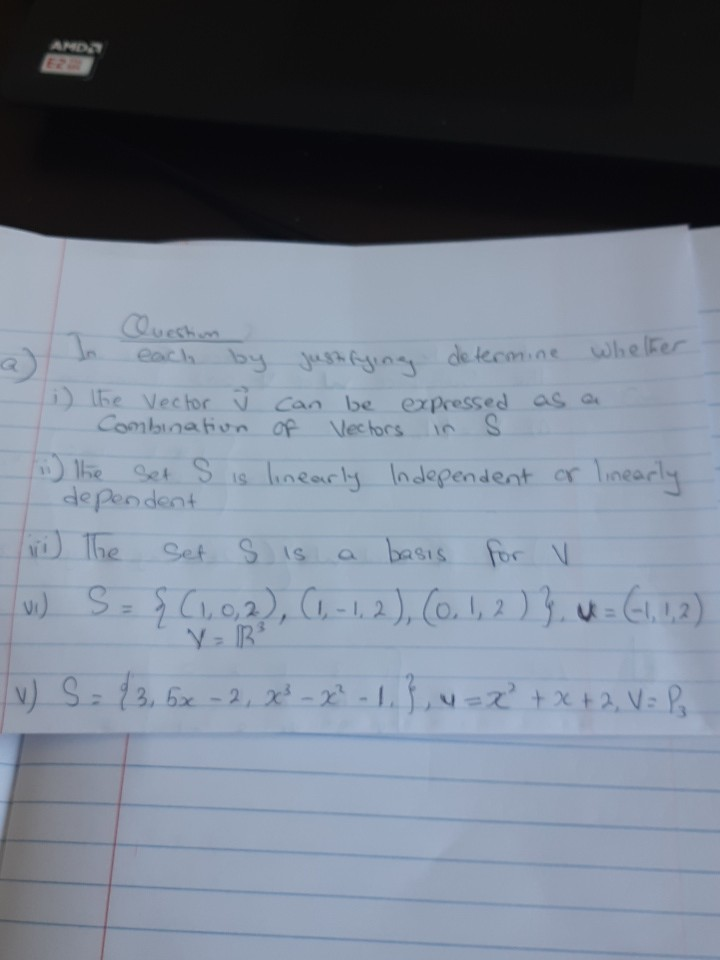 AMD
E2
Question
a) In each by justifying determine whether
i) the vector v⃗ can be expressed as a
Combination of Vectors in S
ii) The set S is linearly Independent or linearly
dependent
iii) The Set S is a basis for V
vi) S = { (1,0,2), (1,-1,2), (0,1,2) }, u = (-1,1,2)
V = ℝ³
v) S = {3, 5x - 2, x³ - x² - 1, }, u = x² + x + 2, V = P₃